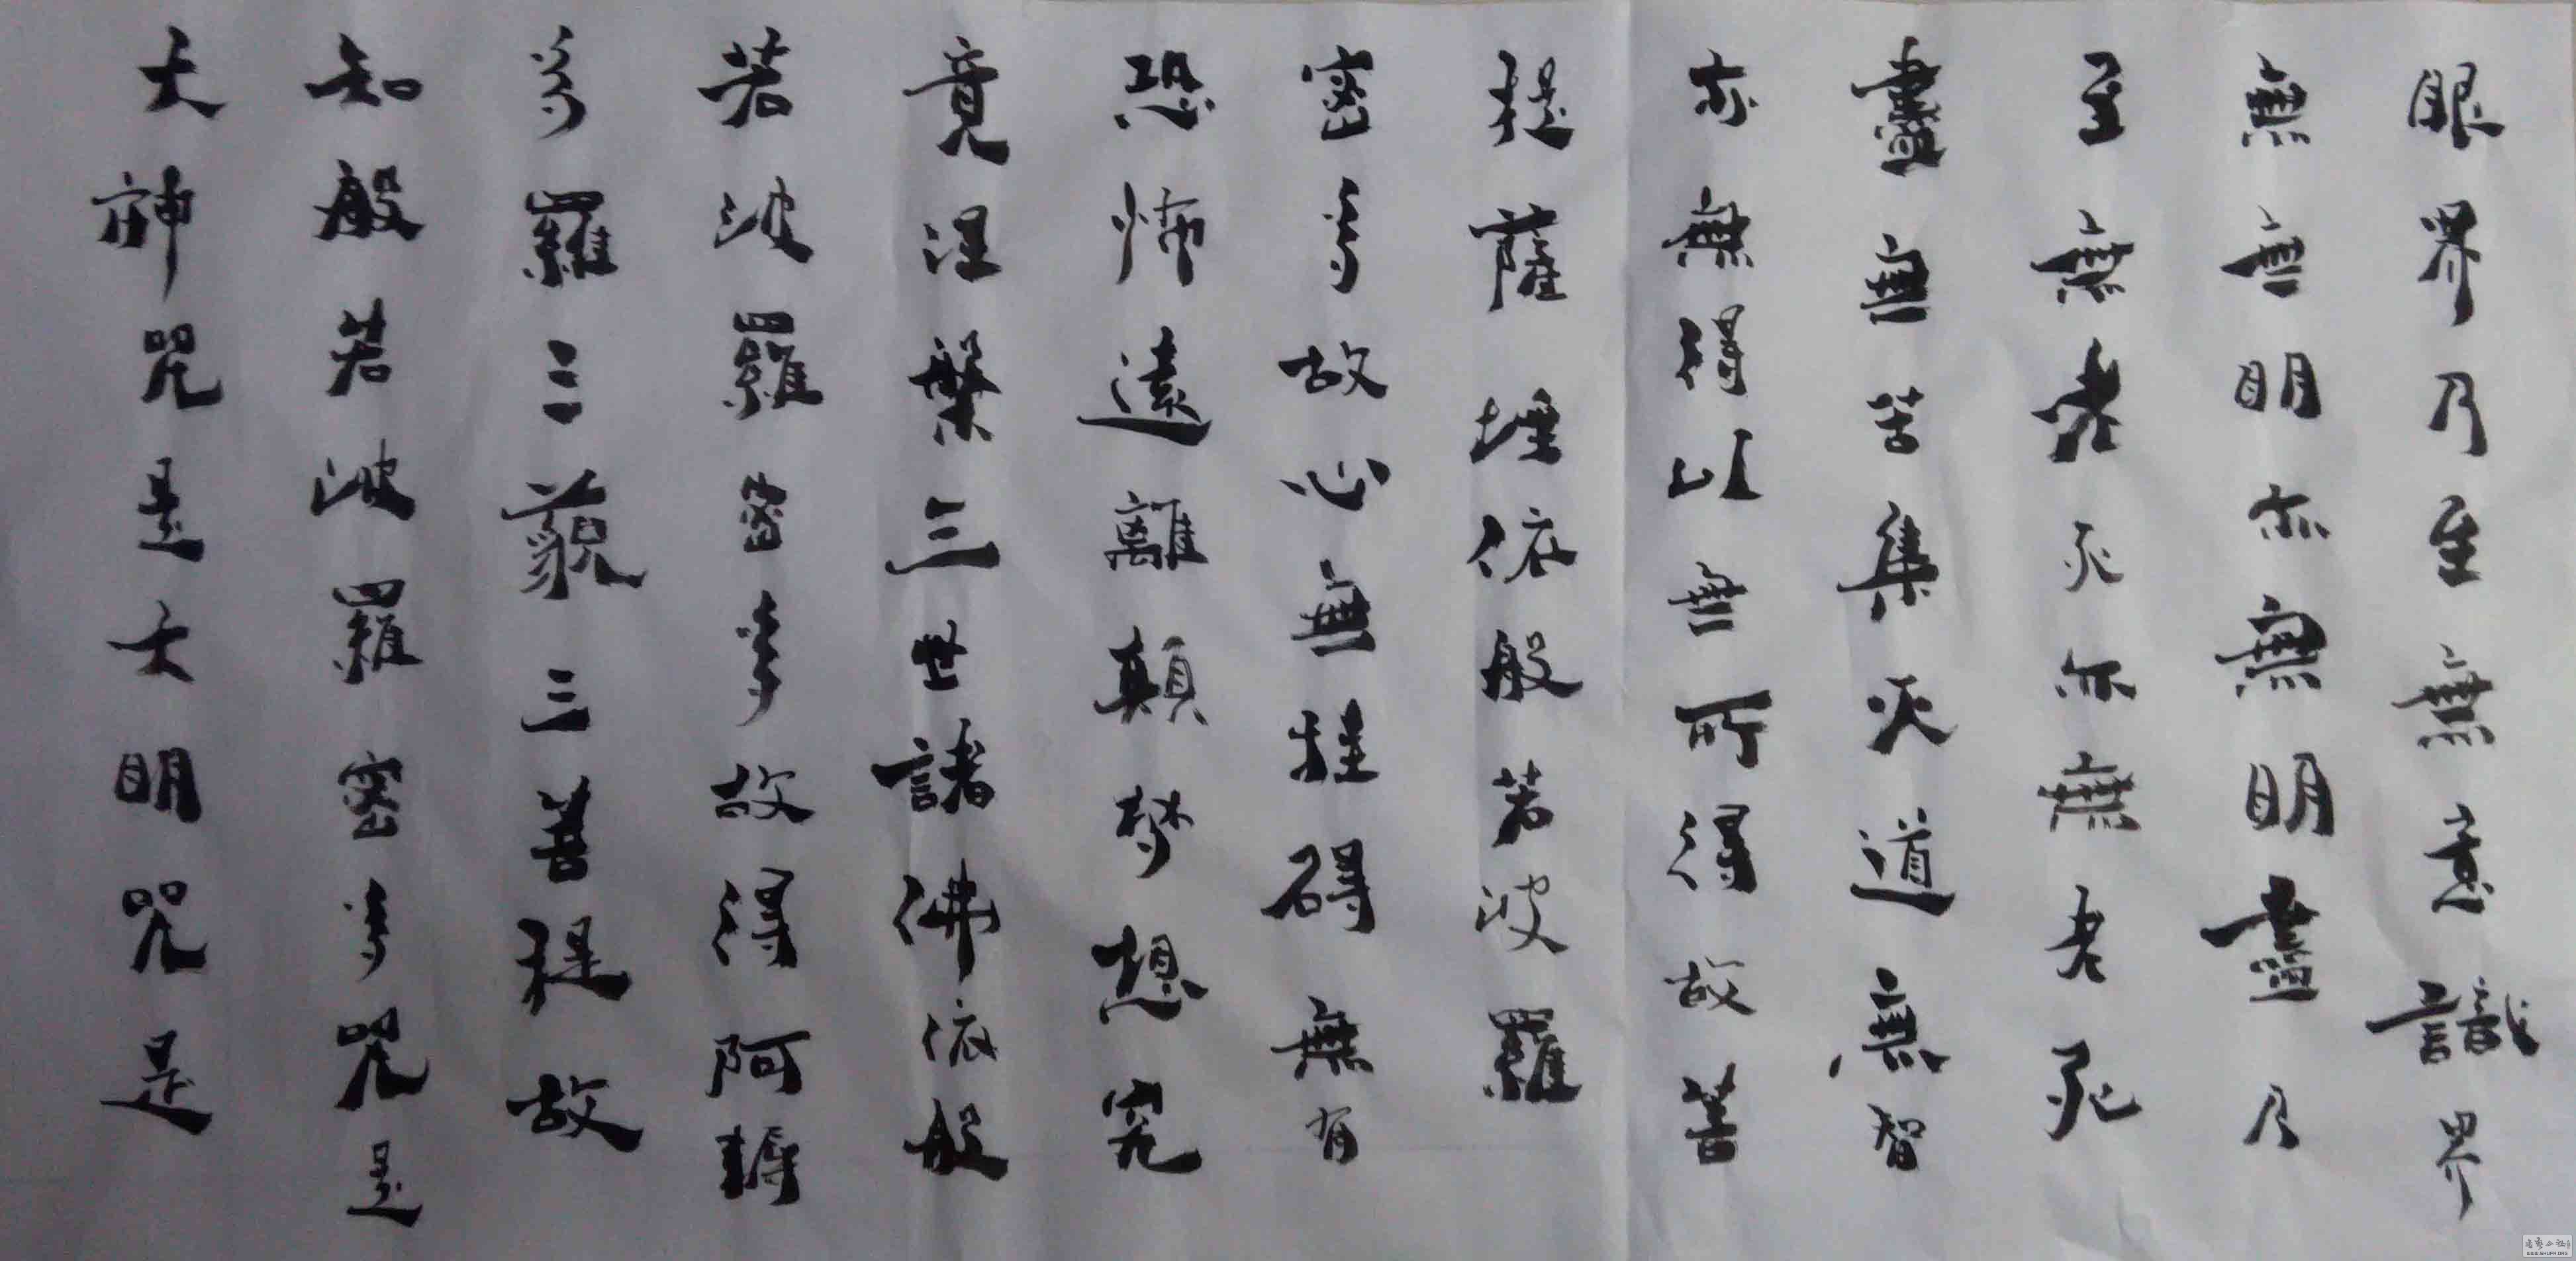 眼界乃至無意識界
無無明亦無明盡乃
至無老死亦無老死
盡無苦集灭道無智
亦無得以無所得故菩
提薩埵依般若波羅
密多故心無挂碍無有
恐怖遠離顛梦想究
竟涅槃三世諸佛依般
若波羅密多故得阿耨
多羅三藐三菩提故
知般若波羅密多咒是
大神咒是大明咒是